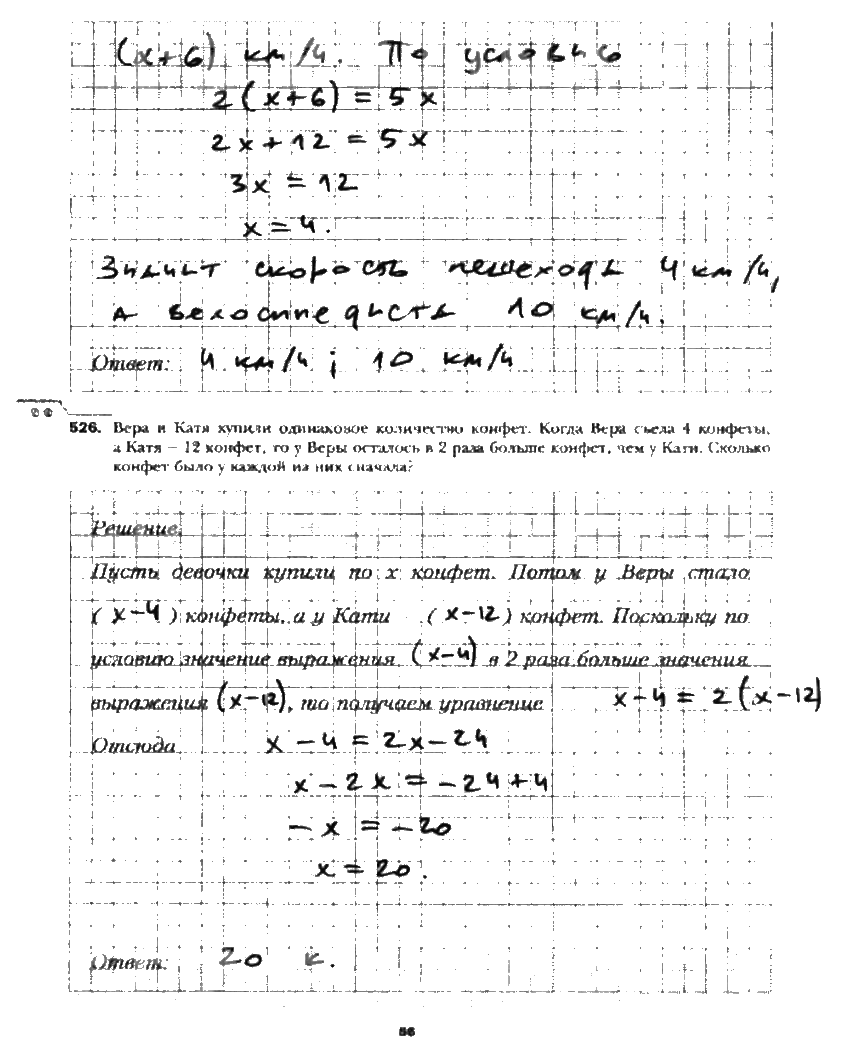 (x+6) км/ч. По условию
2(x+6) = 5x
2x+12 = 5x
3x = 12
x = 4.
Значит скорость пешехода 4 км/ч,
а велосипедиста 10 км/ч.
Ответ: 4 км/ч; 10 км/ч
526. Вера и Катя купили одинаковое количество конфет. Когда Вера съела 4 конфеты,
а Катя – 12 конфет, то у Веры осталось в 2 раза больше конфет, чем у Кати. Сколько
конфет было у каждой из них сначала?
Решение.
Пусть девочки купили по x конфет. Потом у Веры стало
( x-4 ) конфеты, а у Кати ( x-12 ) конфет. Поскольку по
условию значение выражения (x-4) в 2 раза больше значения
выражения (x-12), то получаем уравнение x-4 = 2(x-12)
Отсюда x - 4 = 2x-24
x - 2x = -24+4
-x = -20
x = 20.
Ответ: 20 к.
56